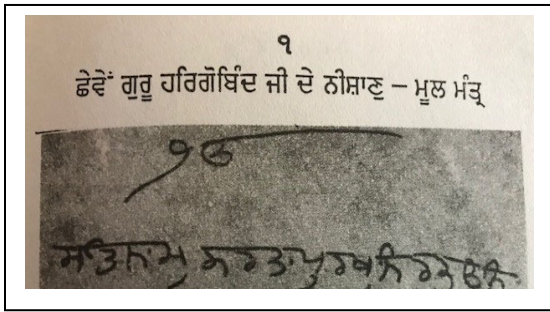 ੧
ਛੇਵੇਂ ਗੁਰੂ ਹਰਿਗੋਬਿੰਦ ਜੀ ਦੇ ਨੀਸ਼ਾਣੁ – ਮੂਲ ਮੰਤ੍ਰ
ੴ
ਸਤਿਨਾਮੁ ਕਰਤਾਪੁਰਖੁ